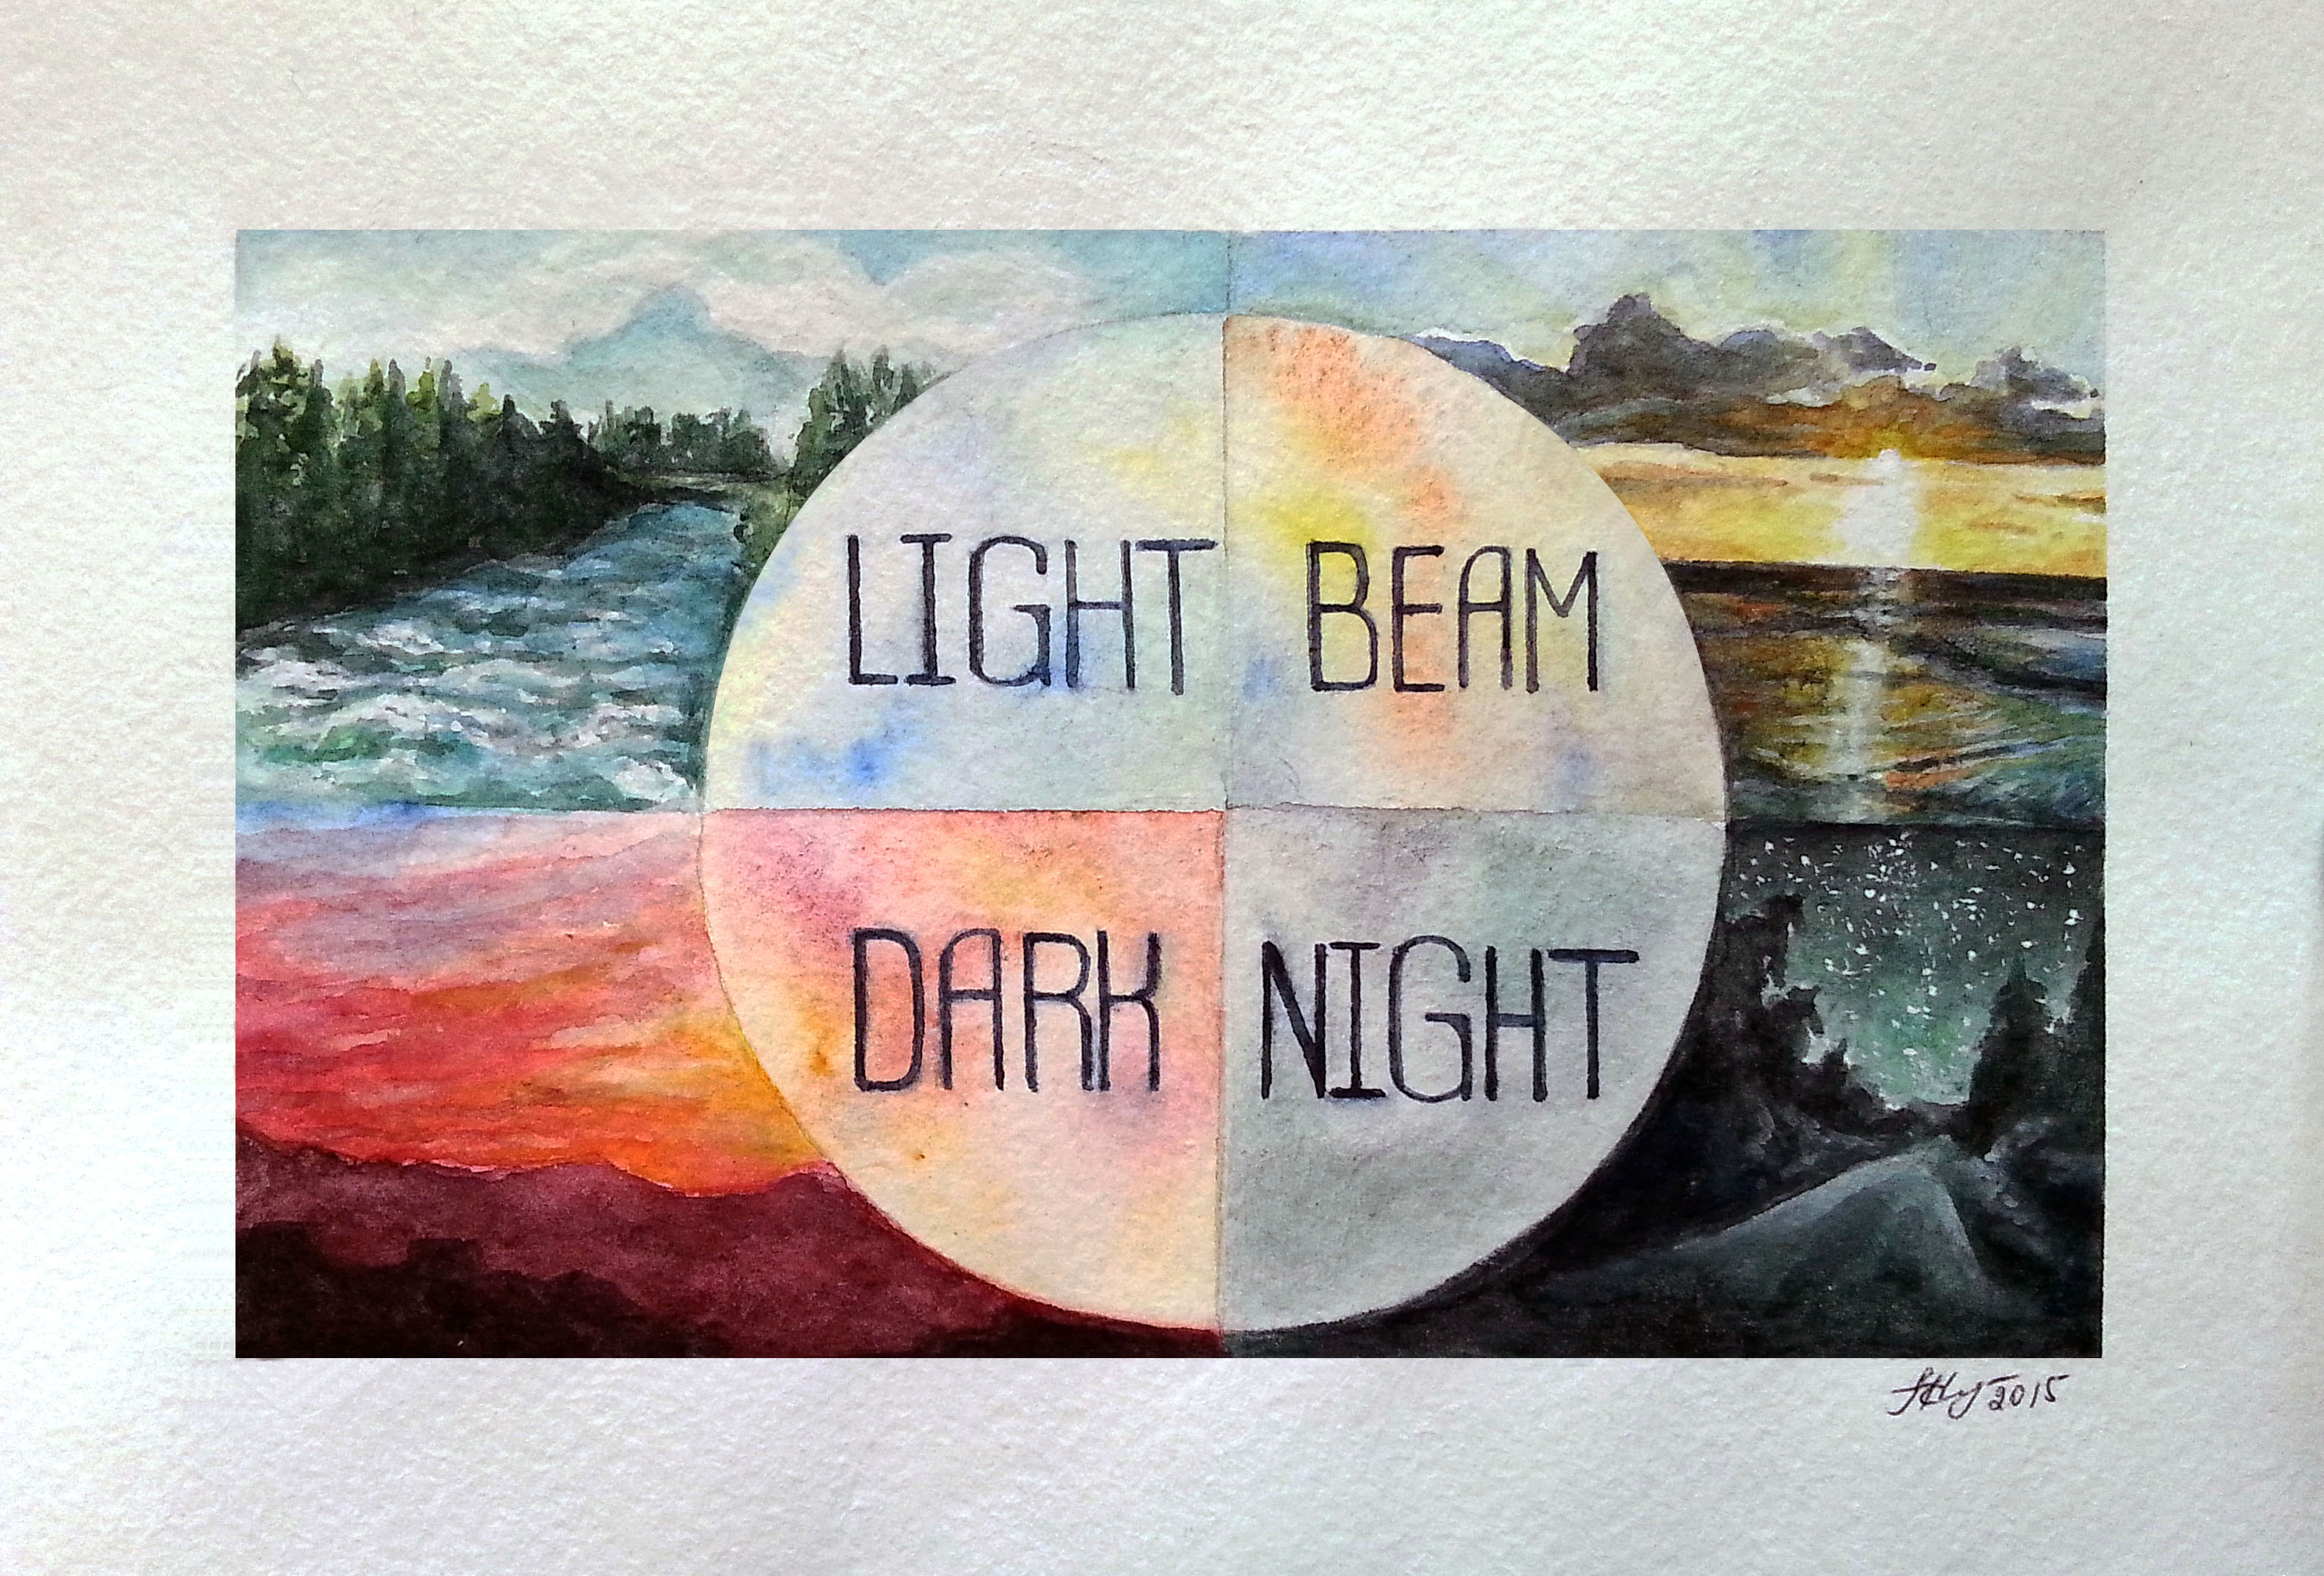 LIGHT BEAM
DARK NIGHT
2015